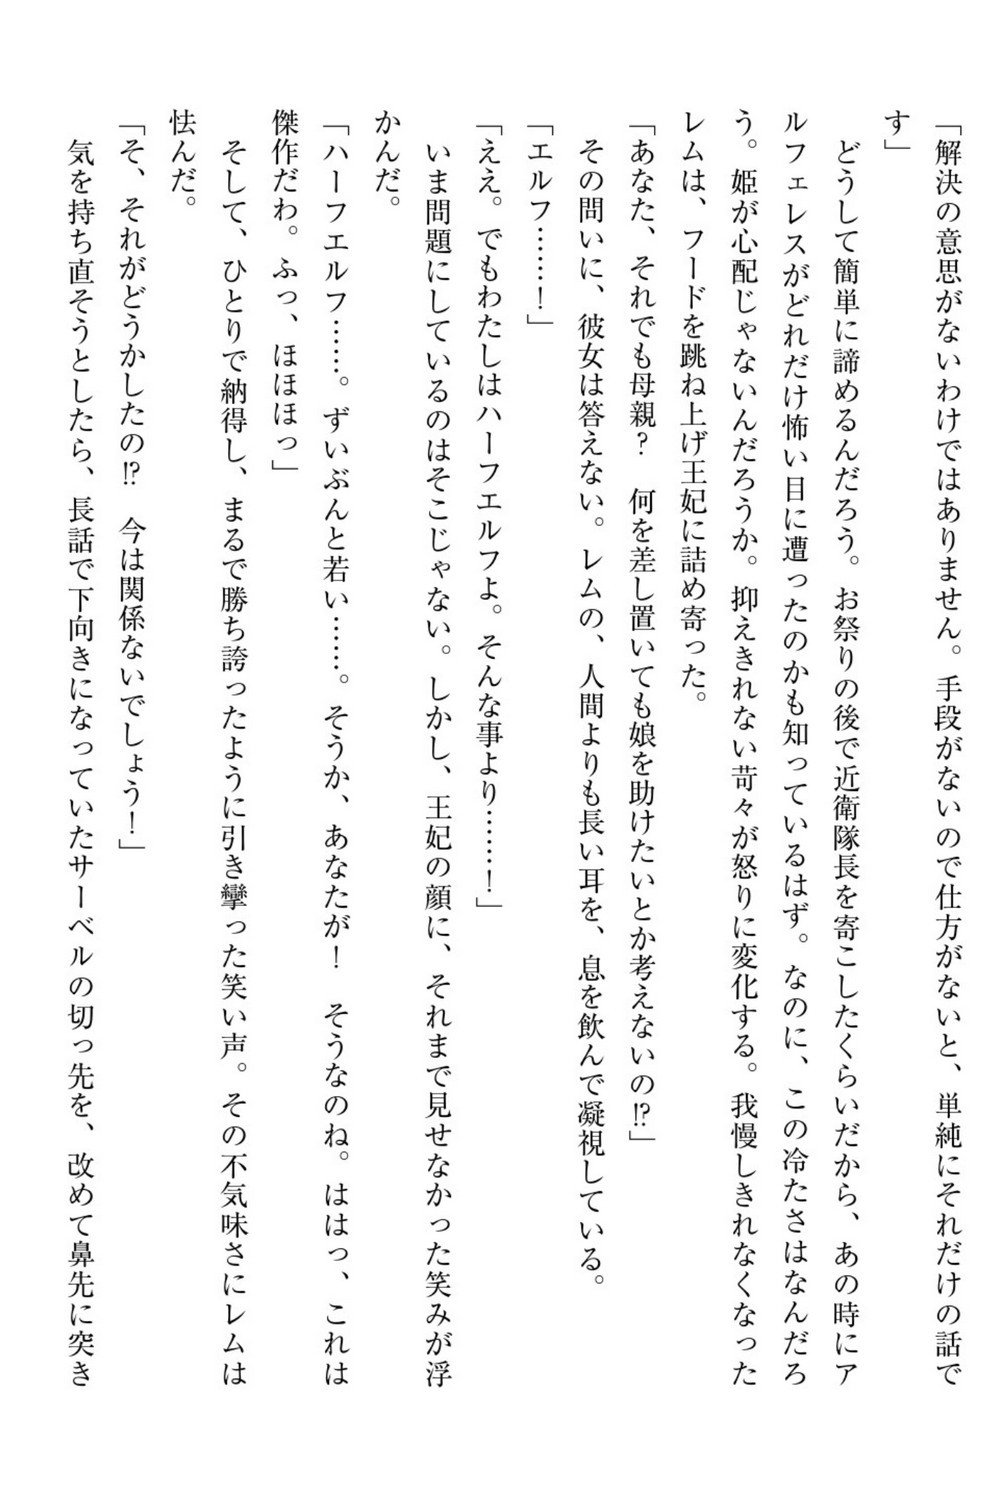 「解決の意思がないわけではありません。手段がないので仕方がないと、単純にそれだけの話で
す」
　どうして簡単に諦めるんだろう。お祭りの後で近衛隊長を寄こしたくらいだから、あの時にア
ルフェレスがどれだけ怖い目に遭ったのかも知っているはず。なのに、この冷たさはなんだろ
う。姫が心配じゃないんだろうか。抑えきれない苛々が怒りに変化する。我慢しきれなくなった
レムは、フードを跳ね上げ王妃に詰め寄った。
「あなた、それでも母親？　何を差し置いても娘を助けたいとか考えないの⁉」
　その問いに、彼女は答えない。レムの、人間よりも長い耳を、息を飲んで凝視している。
「エルフ……！」
「ええ。でもわたしはハーフエルフよ。そんな事より……！」
　いま問題にしているのはそこじゃない。しかし、王妃の顔に、それまで見せなかった笑みが浮
かんだ。
「ハーフエルフ……。ずいぶんと若い……。そうか、あなたが！　そうなのね。ははっ、これは
傑作だわ。ふっ、ほほほっ」
　そして、ひとりで納得し、まるで勝ち誇ったように引き攣った笑い声。その不気味さにレムは
怯んだ。
「そ、それがどうかしたの⁉　今は関係ないでしょう！」
　気を持ち直そうとしたら、長話で下向きになっていたサーベルの切っ先を、改めて鼻先に突き